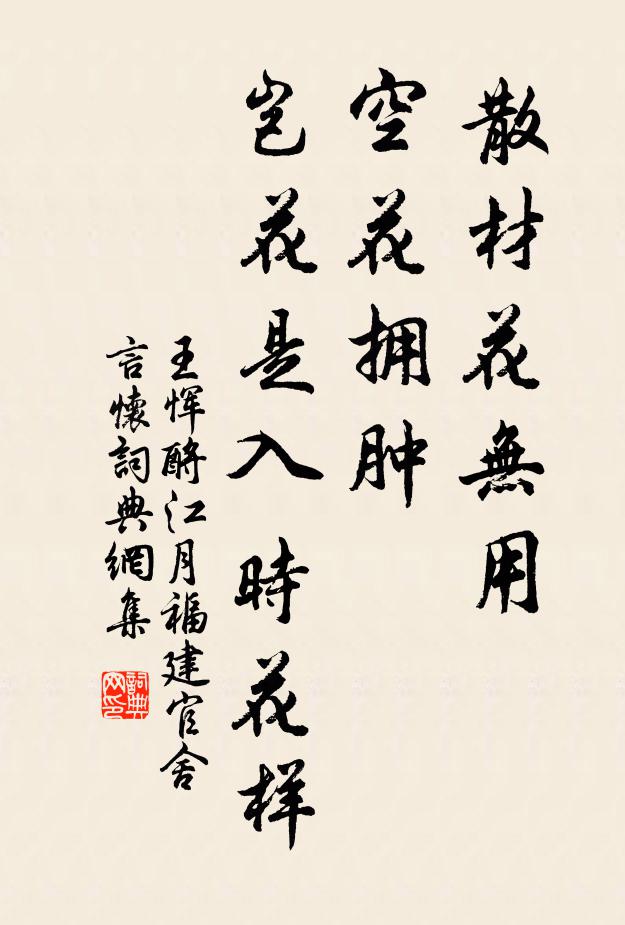 散材花無用
空花拥肿
岂花是入時花样
王恽酹江月福建官舍
言懷詞典網集
詞典
网印